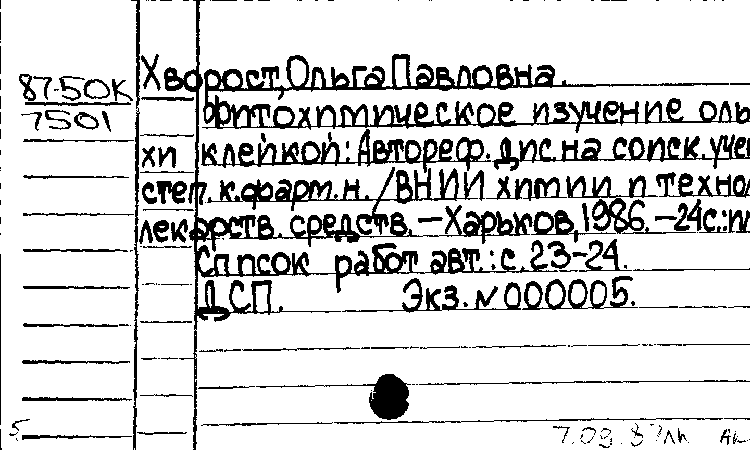 87-50К
7501
Хворост, Ольга Павловна.
Фитохимическое изучение оль
хи клейкой: Автореф. дис. на соиск. учен
степ. к. фарм. н. /ВНИИ химии и техно
лекарств. средств. — Харьков, 1986. — 24с.: ил
Список работ авт.: с. 23-24.
ДСП. Экз. № 000005.
5
7.09.87